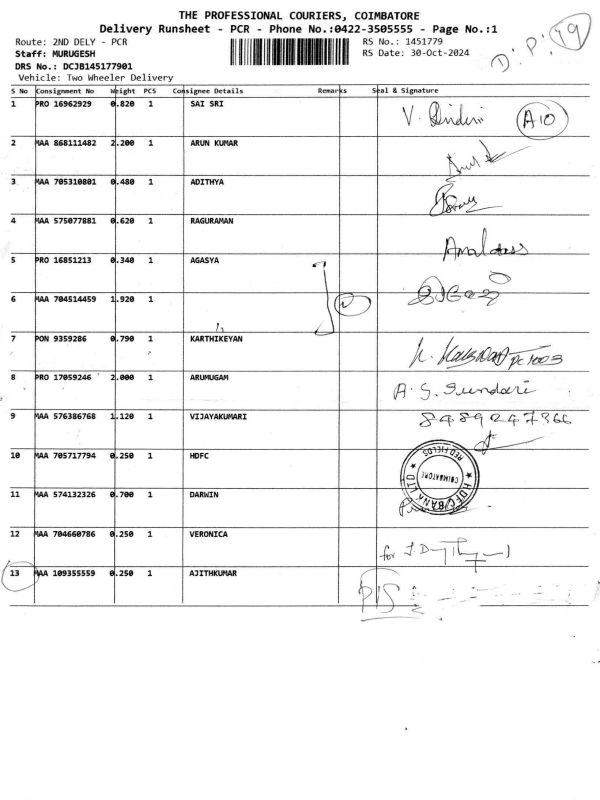 THE PROFESSIONAL COURIERS, COIMBATORE
Delivery Runsheet - PCR - Phone No.:0422-3505555 - Page No.:1
Route: 2ND DELY - PCR
RS No.: 1451779
Staff: MURUGESH
RS Date: 30-Oct-2024
D.P. 79
DRS No.: DCJB145177901
Vehicle: Two Wheeler Delivery
S No Consignment No Weight PCS Consignee Details Remarks Seal & Signature
1 PRO 16962929 0.820 1 SAI SRI A10
2 MAA 868111482 2.200 1 ARUN KUMAR
3 MAA 705310801 0.480 1 ADITHYA
4 MAA 575077881 0.620 1 RAGURAMAN
5 PRO 16851213 0.340 1 AGASYA
6 MAA 704514459 1.920 1
7 PON 9359286 0.790 1 KARTHIKEYAN
8 PRO 17059246 2.000 1 ARUMUGAM A. S. Sundari
9 MAA 576386768 1.120 1 VIJAYAKUMARI 8489247366
10 MAA 705717794 0.250 1 HDFC
HDFC BANK LTD
COIMBATORE
RED FIELDS
11 MAA 574132326 0.700 1 DARWIN
12 MAA 704660786 0.250 1 VERONICA for
13 MAA 109355559 0.250 1 AJITHKUMAR